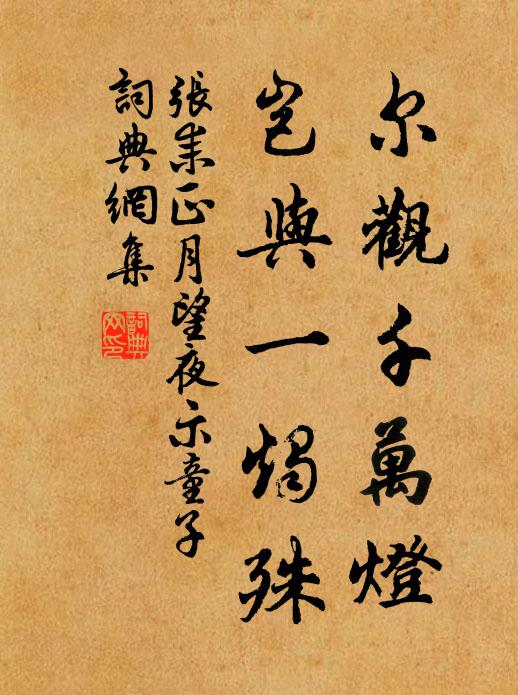 尔觀千萬燈
豈與一燭殊
張耒正月望夜示童子
詞典網集
詞典网印